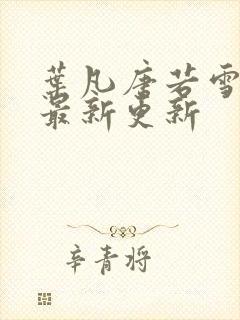 叶凡唐若雪
最新更新
辛青将